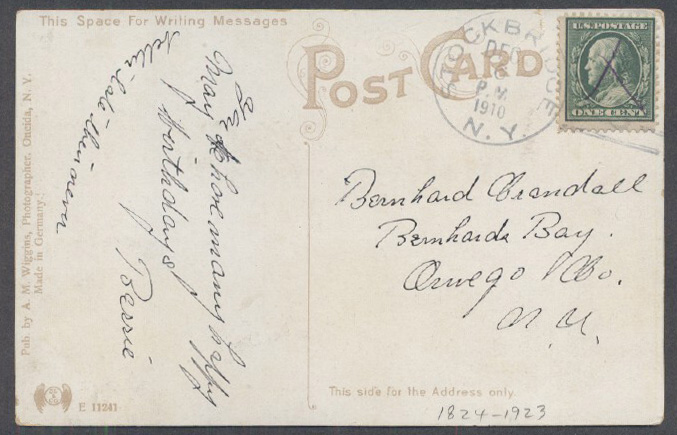 This Space For Writing Messages
POST CARD
STOCKBRIDGE
DEC
6
P.M.
1910
N.Y.
U.S. POSTAGE
ONE CENT
May have many happy
birthdays
Bessie
Bernhard Crandall
Bernhards Bay.
Oswego Co.
N.Y.
Pub. by A. M. Wiggins, Photographer. Oneida, N. Y.
Made in Germany.
E 11241
This side for the Address only.
1824-1923